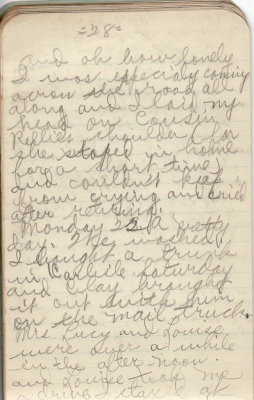 =28=
and oh how lonely
I was especialy coming
across the road all
along and I laid my
head on Cousin
Nellies shoulder for
she stoped in home
for a short time
and couldn't keep
from crying and cried
after retiring.
Monday 22 A pretty
day. We washed.
I bought a trunk
in Carlile Saturday
and Clay brought
it out with him
on the mail truck.
Mrs Lucy and Louise
were over a while
in the after noon.
and Louise took me
a driving